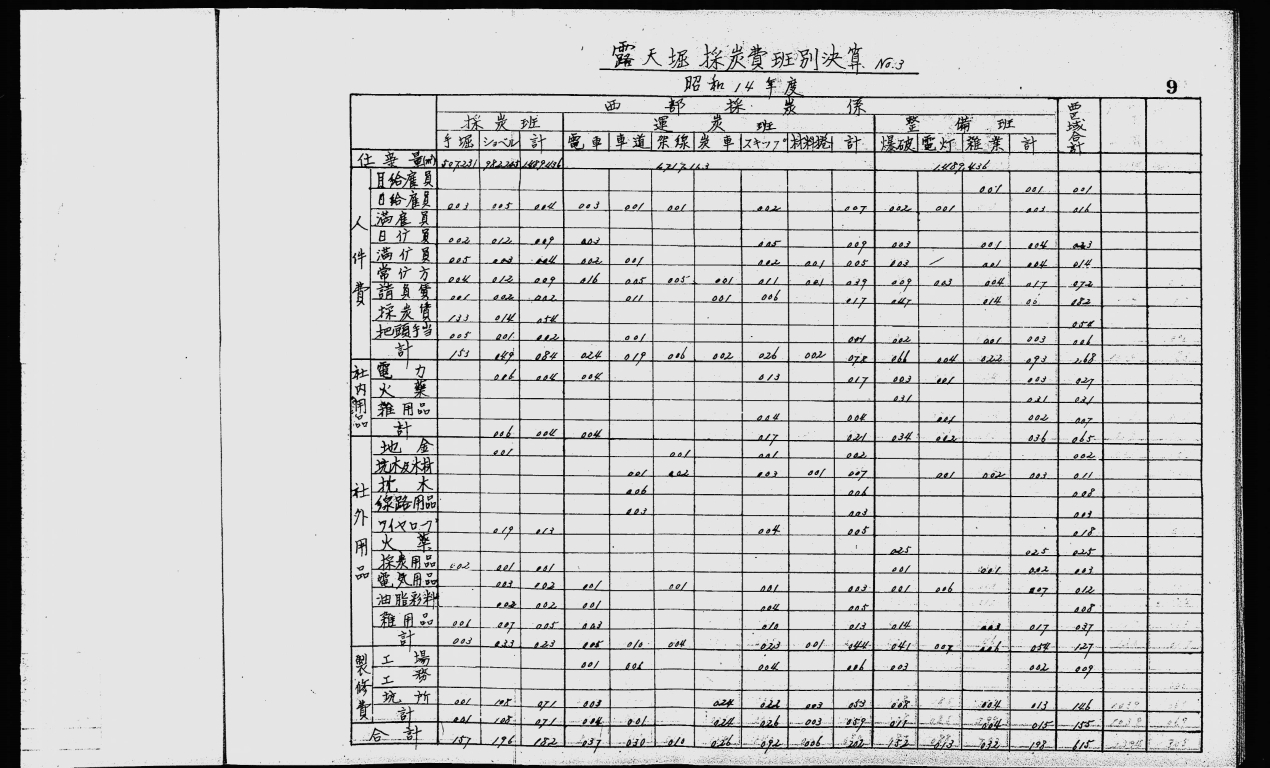 露天堀採炭費班別決算 No.3
昭和14年度
9
西部採炭係
採炭班 運炭班 整備班 西区域合計
手堀 ショベル 計 電車 車道 架線 炭車 スキップ 計 爆破 電灯 雑業 計
仕定量(㎥) 507,231 982,265 1,489,436 1,489,436
人件費
月給雇員 001 001 001
日給雇員 003 005 004 003 001 001 002 007 002 001 003 016
満雇員
日傭員 002 012 009 003 005 009 003 001 004 023
満傭員 005 003 004 002 001 002 001 005 003 / 001 004 014
常傭方 004 012 009 016 005 005 001 011 001 039 009 003 004 017 072
請負賃 001 002 002 011 001 006 017 047 014 082
採炭賃 133 014 054 054
把頭手当 005 001 002 001 001 002 001 003 006
計 153 049 084 024 019 006 002 026 002 078 066 004 022 093 268
社内用品
電力 006 004 004 013 017 003 001 003 027
火薬 031 031 031
雑用品 004 004 001 002 007
計 006 004 004 017 021 034 002 036 065
社外用品
地金 001 001 001 002 002
坑木及木材 001 002 003 001 007 001 002 003 011
枕木 006 006 008
線路用品 003 003 003
ワイヤロープ 019 013 004 005 018
火薬 025 025 025
採炭用品 002 001 001 001 001 002 003
電気用品 003 002 001 001 001 003 001 006 007 012
油脂彩料 002 002 001 004 005 008
雑用品 001 007 005 003 010 013 014 003 017 037
計 003 033 023 008 010 004 023 001 044 041 007 006 054 127
製修費
工場 001 006 004 006 003 002 009
工務
坑所 001 108 071 003 024 022 003 053 008 004 013 146
計 001 108 071 004 001 024 026 003 059 011 004 015 155
合計 157 196 182 037 030 010 026 092 006 202 152 013 032 198 615